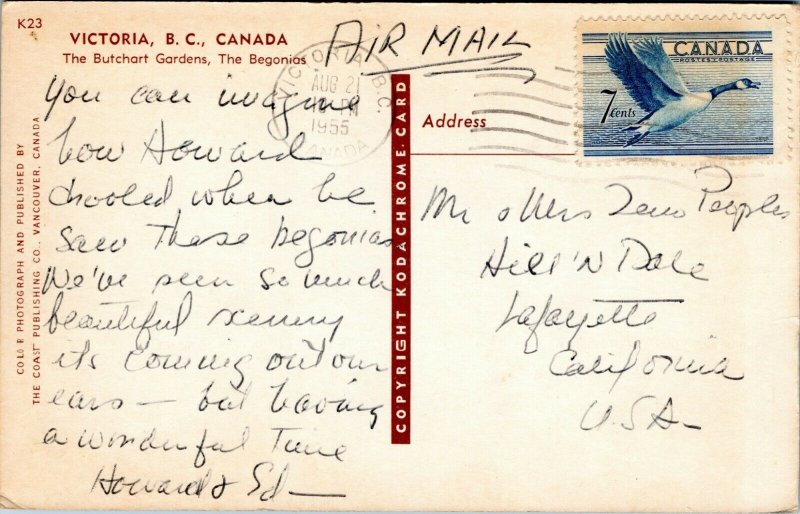 K23
VICTORIA, B. C., CANADA
The Butchart Gardens, The Begonias
AIR MAIL
VICTORIA B.C.
AUG 21
PM
1955
CANADA
CANADA
POSTES POSTAGE
7 cents
You can imagine
how Howard
drooled when he
saw these begonias
We've seen so much
beautiful scenery
it's coming out our
ears — but having
a wonderful time
Howard & Ed —
Address
Mr & Mrs Peoples
Hill 'N Dale
Lafayette
California
U.S.A.
COPYRIGHT KODACHROME CARD
COLOR PHOTOGRAPH AND PUBLISHED BY
THE COAST PUBLISHING CO., VANCOUVER, CANADA